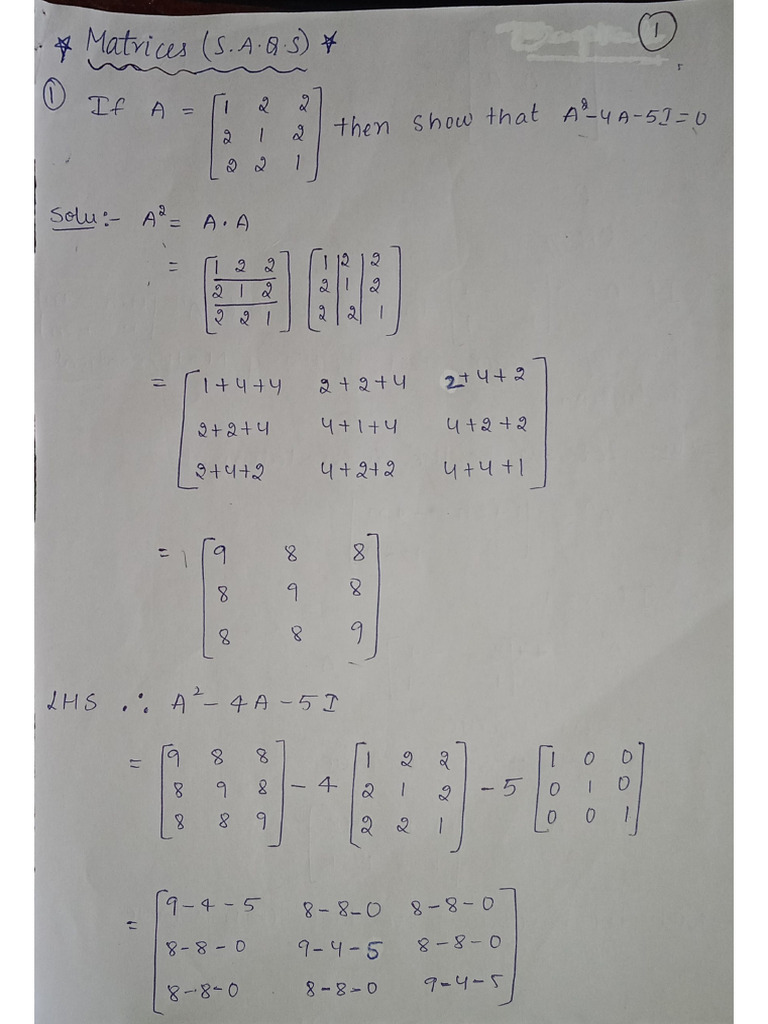 * Matrices (S.A.Q.S) *
1
① If A = [1 2 2
2 1 2
2 2 1] then show that A²-4A-5I=0
Solu:- A² = A.A
= [1 2 2
2 1 2
2 2 1] [1 2 2
2 1 2
2 2 1]
= [1+4+4 2+2+4 2+4+2
2+2+4 4+1+4 4+2+2
2+4+2 4+2+2 4+4+1]
= [9 8 8
8 9 8
8 8 9]
LHS ∴ A²-4A-5I
= [9 8 8
8 9 8
8 8 9] -4 [1 2 2
2 1 2
2 2 1] -5 [1 0 0
0 1 0
0 0 1]
= [9-4-5 8-8-0 8-8-0
8-8-0 9-4-5 8-8-0
8-8-0 8-8-0 9-4-5]